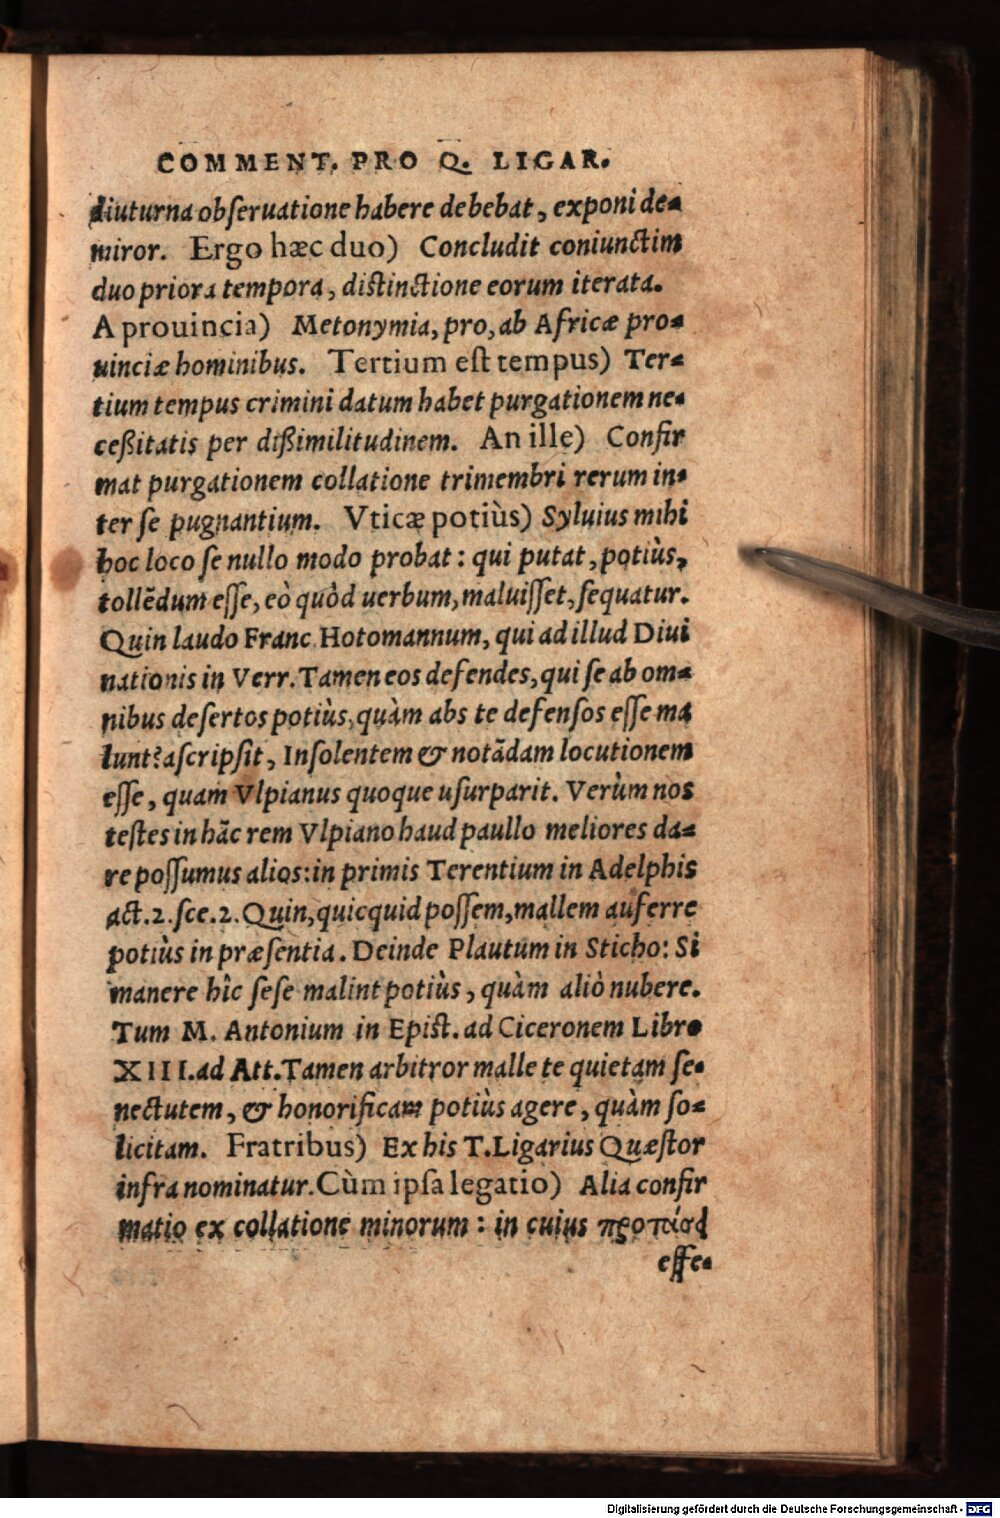 COMMENT. PRO Q. LIGAR.
diuturna obseruatione habere debebat, exponi de-
miror. Ergo hæc duo) Concludit coniunctim
duo priora tempora, distinctione eorum iterata.
A prouincia) Metonymia, pro, ab Africæ pro-
uinciæ hominibus. Tertium est tempus) Ter-
tium tempus crimini datum habet purgationem ne-
ceßitatis per dißimilitudinem. An ille) Confir
mat purgationem collatione trimembri rerum in-
ter se pugnantium. Vticæ potiùs) Syluius mihi
hoc loco se nullo modo probat: qui putat, potiùs,
tollēdum esse, eò quòd uerbum, maluisset, sequatur.
Quin laudo Franc. Hotomannum, qui ad illud Diui
nationis in Verr. Tamen eos defendes, qui se ab om-
nibus desertos potiùs, quàm abs te defensos esse ma
lunt? ascripsit, Insolentem & notādam locutionem
esse, quam Vlpianus quoque usurparit. Verùm nos
testes in hāc rem Vlpiano haud paullo meliores da-
re possumus alios: in primis Terentium in Adelphis
act. 2. sce. 2. Quin, quicquid possem, mallem auferre
potiùs in præsentia. Deinde Plautum in Sticho: Si
manere hîc sese malint potiùs, quàm aliò nubere.
Tum M. Antonium in Epist. ad Ciceronem Libro
XIII. ad Att. Tamen arbitror malle te quietam se-
nectutem, & honorificam potiùs agere, quàm so-
licitam. Fratribus) Ex his T. Ligarius Quæstor
infra nominatur. Cùm ipsa legatio) Alia confir
matio ex collatione minorum: in cuius
effe-
Digitalisierung gefördert durch die Deutsche Forschungsgemeinschaft - DFG